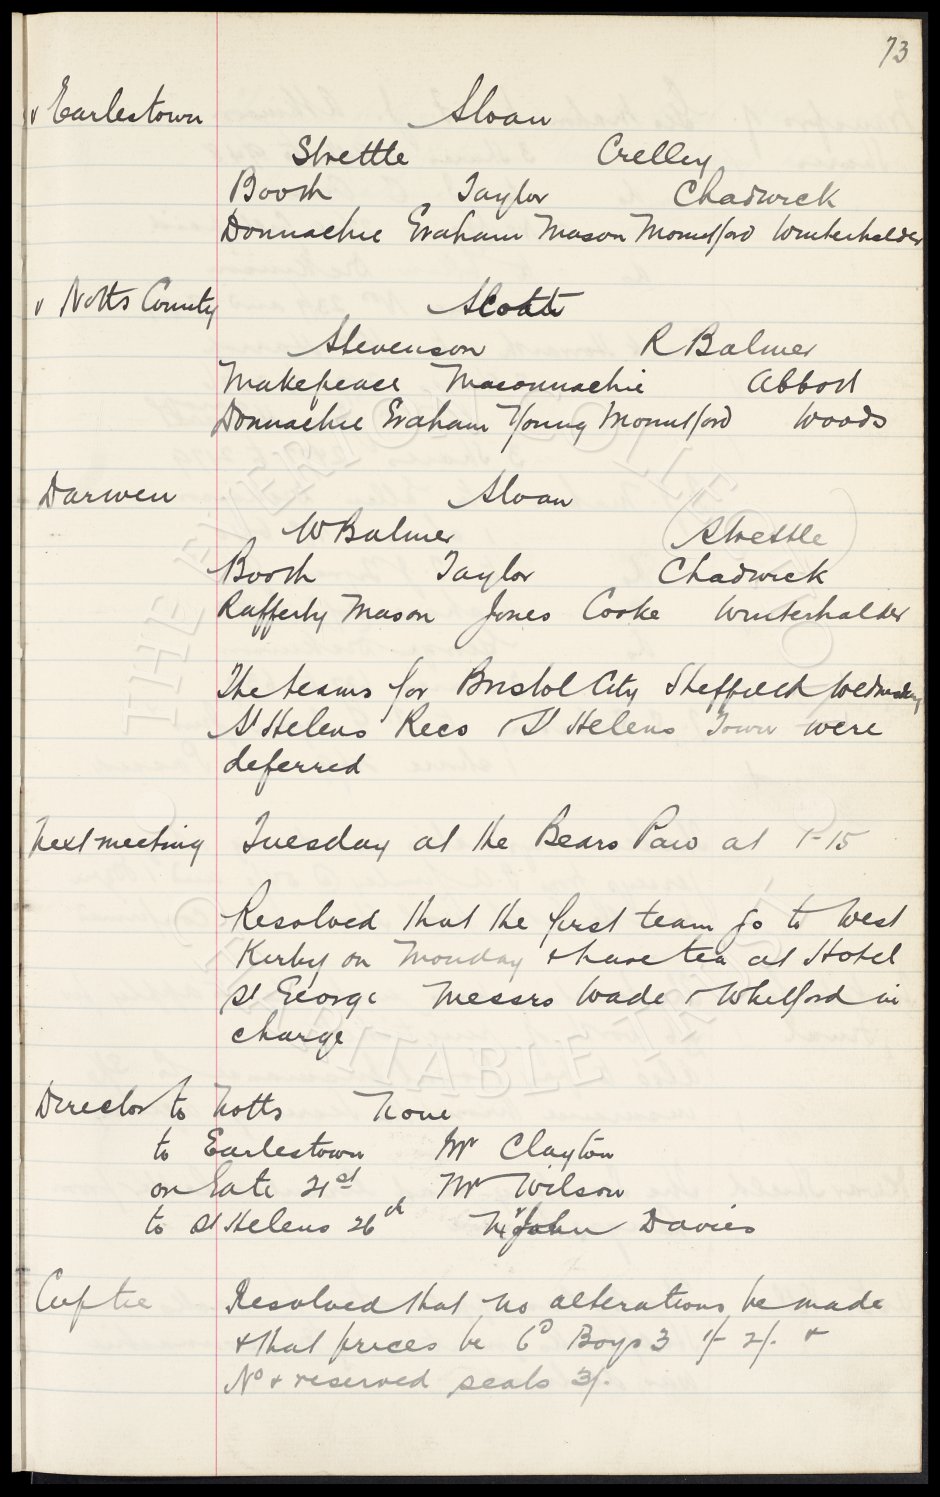 73
v Earlestown Sloan
Strettle Crelley
Booth Taylor Chadwick
Donnachie Graham Mason Mountford Winterhalder
v Notts County Scott
Stevenson R Balmer
Makepeace Maconnachie Abbott
Donnachie Graham Young Mountford Woods
Darwen Sloan
W Balmer Strettle
Booth Taylor Chadwick
Rafferty Mason Jones Cooke Winterhalder
The teams for Bristol City Sheffield Wednesday
St Helens Recs & St Helens Town were
deferred
Next meeting Tuesday at the Bears Paw at 1-15
Resolved that the first team go to West
Kirby on Monday & have tea at Hotel
St George Messrs Wade & Whitford in
charge
Director to Notts None
to Earlestown Mr Clayton
on Gate 21st Mr Wilson
to St Helens 26th Mr John Davies
Cup tie Resolved that no alterations be made
& that prices be 6D Boys 3 1/- 2/- &
No & reserved seats 3/-
THE EVERTON COLLECTION
CHARITABLE TRUST